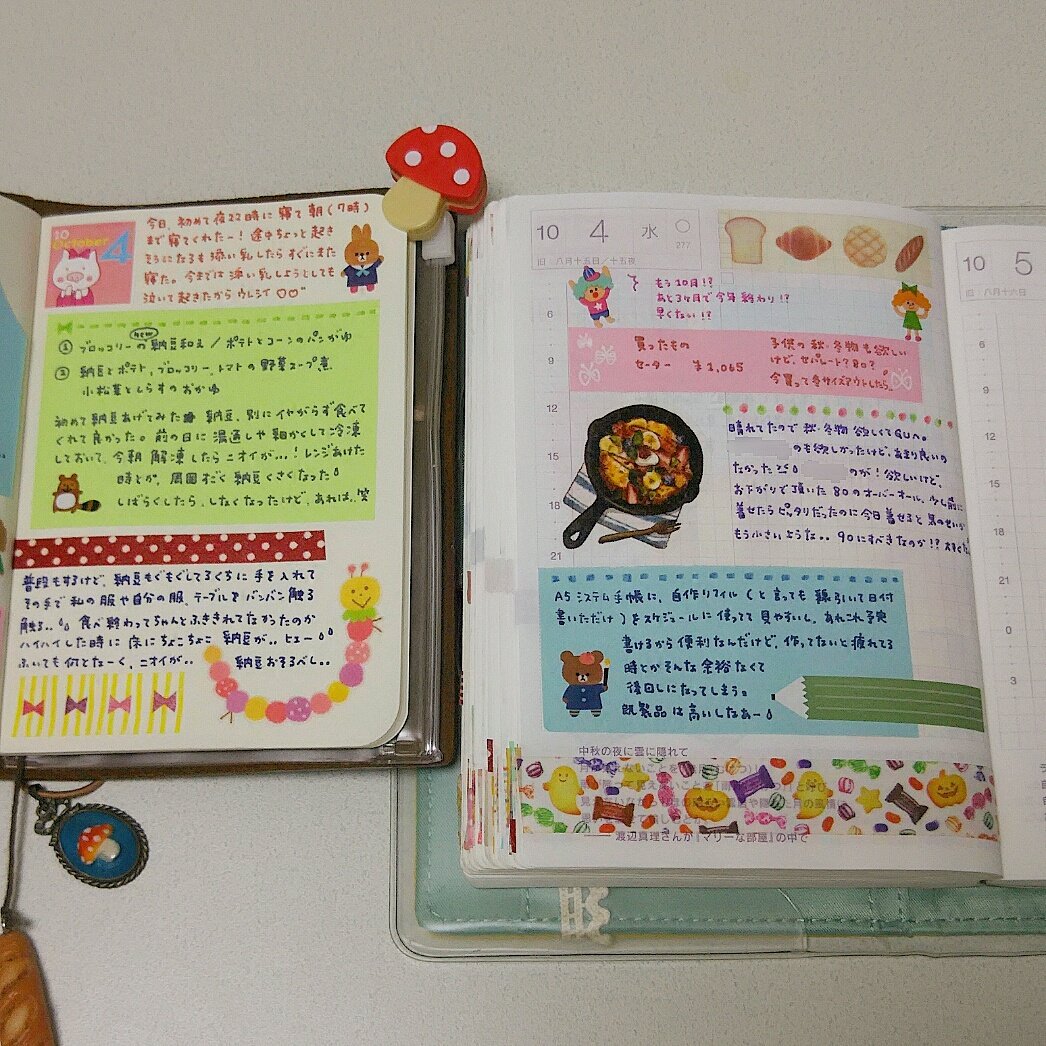 10
October
4
今日、初めて夜22時に寝て朝(7時)
まで寝てくれたー!途中ちょっと起き
そうになるも添い乳したらすぐにまた
寝た。今までは添い乳しようとしても
泣いて起きたからウレシイ♡♡
new
① ブロッコリーの納豆和え/ポテトとコーンのパンがゆ
② 納豆とポテト、ブロッコリー、トマトの野菜スープ煮
小松菜としらすのおかゆ
初めて納豆あげてみた 納豆、別にイヤがらず食べて
くれて良かった。前の日に湯通しや細かくして冷凍
しておいて、今朝解凍したらニオイが...!レンジあけた
時とか、周囲すごく納豆くさくなった
しばらくしたら、しなくなったけど、あれは..笑
普段もするけど、納豆もぐもぐしてるくちに手を入れて
その手で私の服や自分の服、テーブルをバンバン触る
触る.. 食べ終わってちゃんとふききれてなかったのか
ハイハイした時に床にちょこちょこ納豆が..ヒュー
ふいても何とな〜く、ニオイが..
納豆おそるべし..
10 4 水
277
旧:八月十五日/十五夜
もう10月!?
あと3ヶ月で今年終わり!?
早くない!?
買ったもの
セーター ¥1,065
子供の秋・冬物も欲しい
けど、セパレート?80?
今買って冬サイズアウトしたら..
晴れてたので秋・冬物欲しくてGUへ。
のも欲しかったけど、あまり良いの
なかった のが!欲しいけど、
お下がりで頂いた80のオーバーオール、少し前に
着せたらピッタリだったのに今日着せると気のせいか
もう小さいような.. 90にすべきなのか!?
6
9
12
15
18
21
A5システム手帳に、自作リフィル(と言っても線引いて日付
書いただけ)をスケジュールに使ってて見やすいし、あれこれ予定
書けるから便利なんだけど、作ってないと疲れてる
時とかそんな余裕なくて
後回しになってしまう。
既製品は高いしなあー
中秋の夜に雲に隠れて
渡辺真理さんが『マリーな部屋』の中で
10 5
旧:八月十六日
6
9
12
15
18
0
3